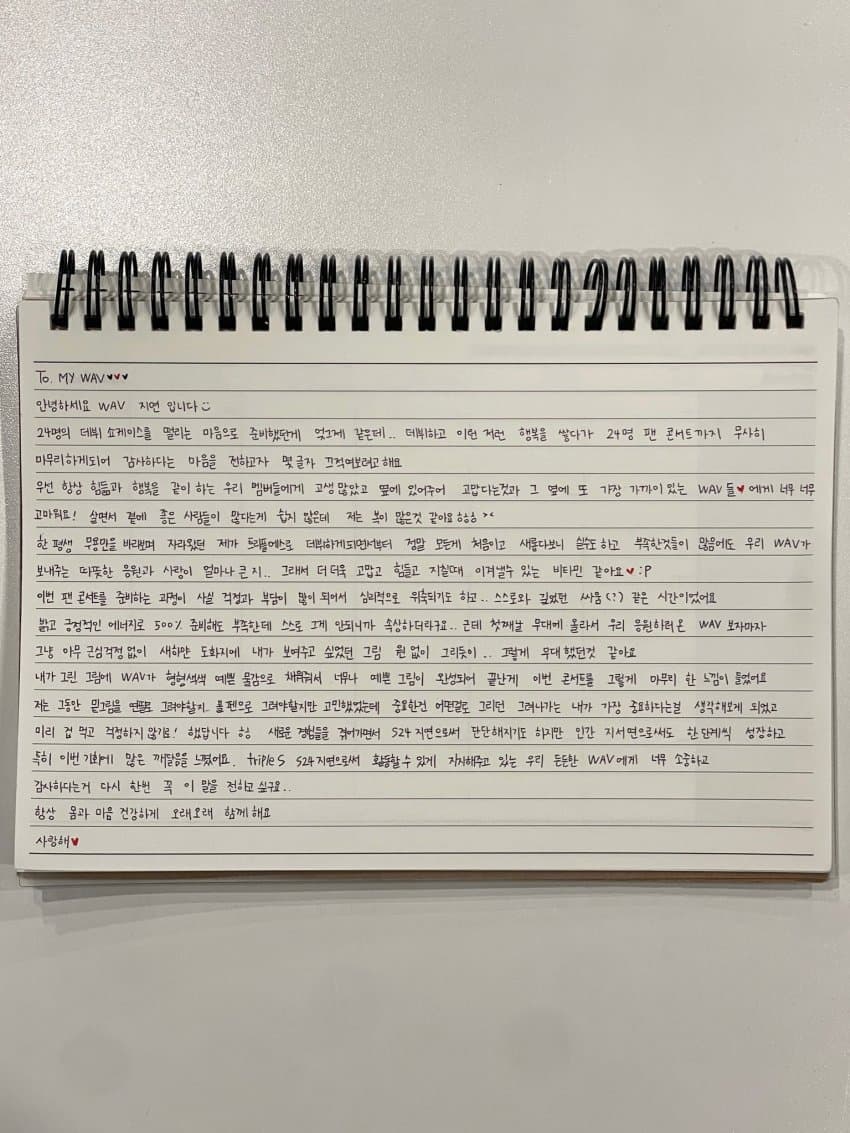 To. MY WAV♥♥♥
안녕하세요 WAV 지연 입니다 :)
24명의 데뷔 쇼케이스를 떨리는 마음으로 준비했던게 엊그제 같은데.. 데뷔하고 이런 저런 행복을 쌓다가 24명 팬 콘서트까지 무사히
마무리하게되어 감사하다는 마음을 전하고자 몇 글자 끄적여보려고 해요
우선 항상 힘듦과 행복을 같이 하는 우리 멤버들에게 고생 많았고 옆에 있어주어 고맙다는것과 그 옆에 또 가장 가까이 있는 WAV 들♥에게 너무 너무
고마워요! 살면서 곁에 좋은 사람들이 많다는게 쉽지 않은데 저는 복이 많은것 같아요 ㅎㅎㅎ ><
한 평생 무용만을 바라보며 자라왔던 제가 트리플에스로 데뷔하게되면서부터 정말 모든게 처음이고 새롭다보니 실수도 하고 부족한것들이 많음에도 우리 WAV가
보내주는 따뜻한 응원과 사랑이 얼마나 큰 지.. 그래서 더 더욱 고맙고 힘들고 지칠때 이겨낼수 있는 비타민 같아요♥ :P
이번 팬 콘서트를 준비하는 과정이 사실 걱정과 부담이 많이 되어서 심리적으로 위축되기도 하고.. 스스로와 깊었던 싸움(?) 같은 시간이었어요
밝고 긍정적인 에너지로 500% 준비해도 부족한데 스스로 그게 안되니까 속상하더라구요.. 근데 첫째날 무대에 올라서 우리 응원하러온 WAV 보자마자
그냥 아무 근심걱정 없이 새하얀 도화지에 내가 보여주고 싶었던 그림 원 없이 그리듯이.. 그렇게 무대 했던것 같아요
내가 그린 그림에 WAV가 형형색색 예쁜 물감으로 채워줘서 너무나 예쁜 그림이 완성되어 끝난게 이번 콘서트를 그렇게 마무리 한 느낌이 들었어요
저는 그동안 밑그림을 연필로 그려야할지.. 볼펜으로 그려야할지만 고민했었는데 중요한건 어떤걸로 그리던 그려나가는 내가 가장 중요하다는걸 생각해보게 되었고
미리 겁 먹고 걱정하지 않기로! 했답니다 ㅎㅎ 새로운 경험들을 겪어가면서 S24 지연으로써 단단해지기도 하지만 인간 지서연으로써도 한 단계씩 성장하고
특히 이번 기회에 많은 깨달음을 느꼈어요. tripleS S24 지연으로써 활동할 수 있게 지지해주고 있는 우리 든든한 WAV에게 너무 소중하고
감사하다는거 다시 한번 꼭 이 말을 전하고 싶구요..
항상 몸과 마음 건강하게 오래오래 함께 해요
사랑해♥